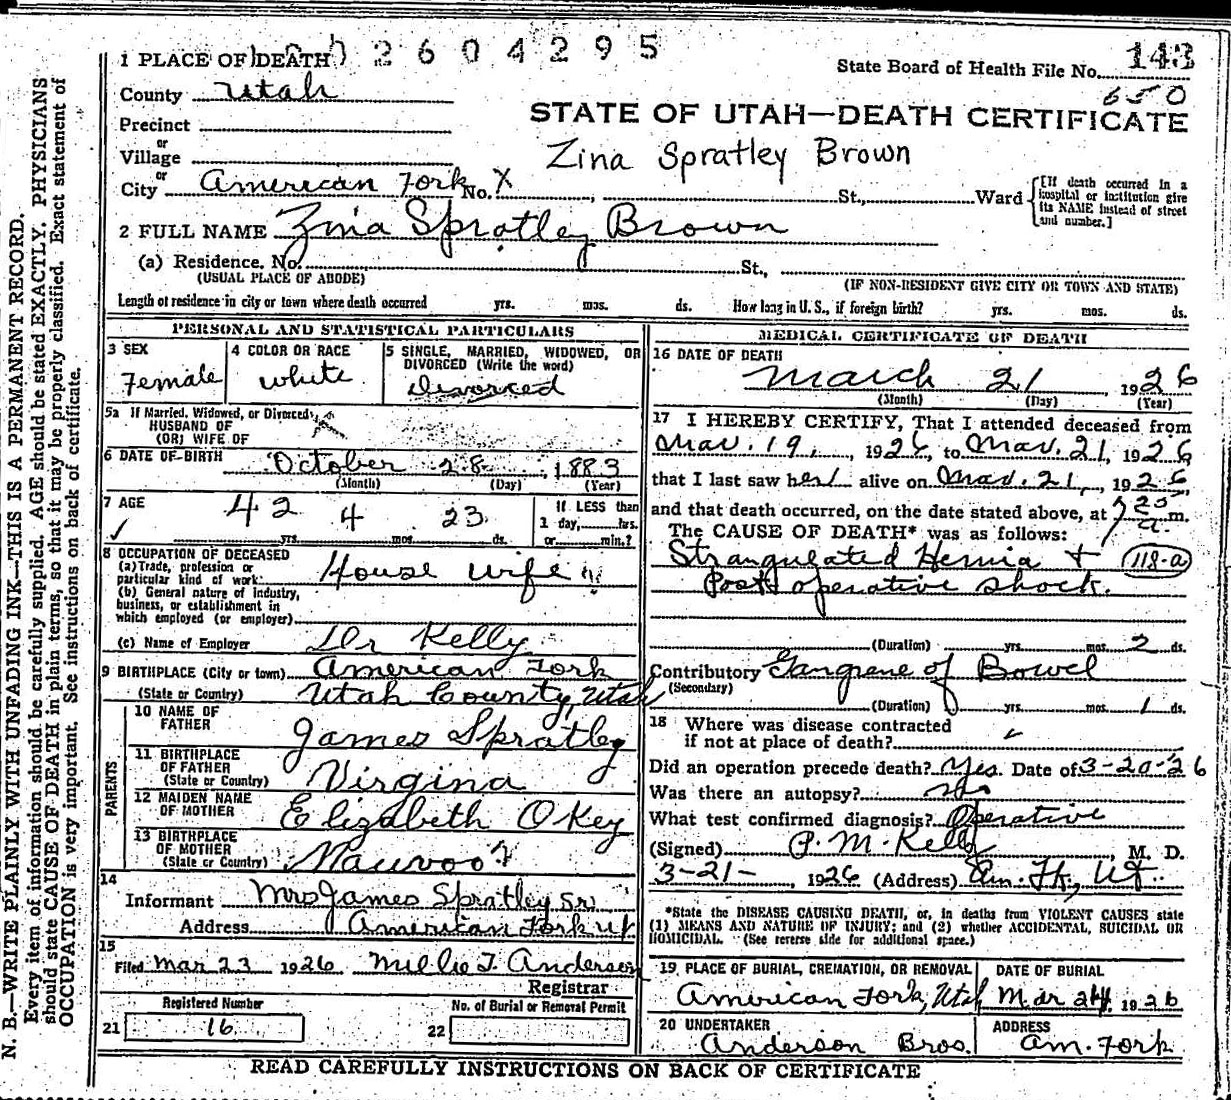 2604295
1 PLACE OF DEATH
State Board of Health File No. 143
650
County Utah
STATE OF UTAH—DEATH CERTIFICATE
Precinct
or
Village
Zina Spratley Brown
or
City American Fork No. X St., Ward {[If death occurred in a hospital or institution give its NAME instead of street and number.]
2 FULL NAME Zina Spratley Brown
(a) Residence. No. St.,
(USUAL PLACE OF ABODE) (IF NON-RESIDENT GIVE CITY OR TOWN AND STATE)
Length of residence in city or town where death occurred yrs. mos. ds. How long in U. S., if foreign birth? yrs. mos. ds.
PERSONAL AND STATISTICAL PARTICULARS
3 SEX
Female
4 COLOR OR RACE
White
5 SINGLE, MARRIED, WIDOWED, OR
DIVORCED (Write the word)
Divorced
5a If Married, Widowed, or Divorced
HUSBAND OF
(OR) WIFE OF
6 DATE OF BIRTH October 28 1883
(Month) (Day) (Year)
7 AGE 42 yrs. 4 mos. 23 ds.
If LESS than
1 day, hrs.
or min.?
8 OCCUPATION OF DECEASED
(a) Trade, profession or
particular kind of work House wife
(b) General nature of industry,
business, or establishment in
which employed (or employer)
(c) Name of Employer Dr Kelly
9 BIRTHPLACE (City or town) American Fork
(State or Country) Utah County, Utah
PARENTS
10 NAME OF
FATHER James Spratley
11 BIRTHPLACE
OF FATHER
(State or Country) Virgina
12 MAIDEN NAME
OF MOTHER Elizabeth OKey
13 BIRTHPLACE
OF MOTHER
(State or Country) Nauvoo
14
Informant Mrs James Spratley Sr
Address American Fork Ut
15
Filed Mar 23 1926 Millie T. Anderson
Registrar
Registered Number
21 16
No. of Burial or Removal Permit
22
MEDICAL CERTIFICATE OF DEATH
16 DATE OF DEATH
March 21 1926
(Month) (Day) (Year)
17 I HEREBY CERTIFY, That I attended deceased from
Mar. 19, 1926, to Mar. 21, 1926
that I last saw her alive on Mar. 21, 1926,
and that death occurred, on the date stated above, at a m.
The CAUSE OF DEATH* was as follows:
Strangulated Hernia + 118-a
Post operative shock.
(Duration) yrs. mos. 2 ds.
Contributory Gangrene of Bowel
(Secondary)
(Duration) yrs. mos. 1 ds.
18 Where was disease contracted
if not at place of death?
Did an operation precede death? Yes. Date of 3-20-26
Was there an autopsy? no
What test confirmed diagnosis? Operative
(Signed) P. M. Kelly M. D.
3-21-, 1926 (Address) Am. Fk, Ut.
*State the DISEASE CAUSING DEATH, or, in deaths from VIOLENT CAUSES state
(1) MEANS AND NATURE OF INJURY; and (2) whether ACCIDENTAL, SUICIDAL OR
HOMICIDAL. (See reverse side for additional space.)
19 PLACE OF BURIAL, CREMATION, OR REMOVAL
American Fork, Utah
DATE OF BURIAL
Mar 24, 1926
20 UNDERTAKER
Anderson Bros.
ADDRESS
Am. Fork
READ CAREFULLY INSTRUCTIONS ON BACK OF CERTIFICATE
N. B.—WRITE PLAINLY WITH UNFADING INK—THIS IS A PERMANENT RECORD.
Every item of information should be carefully supplied. AGE should be stated EXACTLY. PHYSICIANS
should state CAUSE OF DEATH in plain terms, so that it may be properly classified. Exact statement of
OCCUPATION is very important. See instructions on back of certificate.